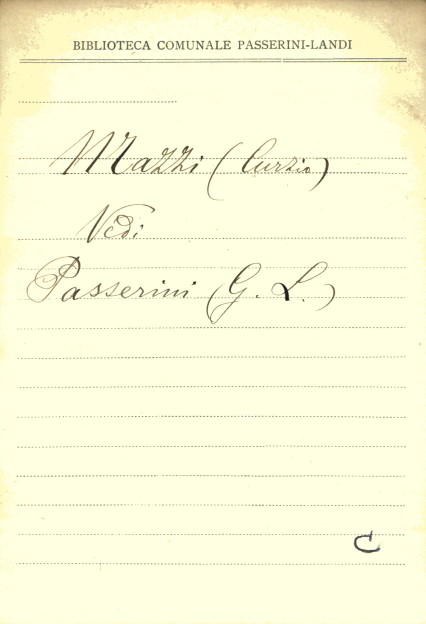 BIBLIOTECA COMUNALE PASSERINI-LANDI
Mazzi (Curzio)
Vedi
Passerini (G. L.)
C